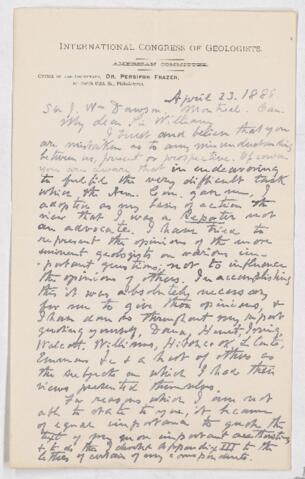 INTERNATIONAL CONGRESS OF GEOLOGISTS.
AMERICAN COMMITTEE.
OFFICE OF THE SECRETARY, DR. PERSIFOR FRAZER,
Philadelphia.
April 23. 1888
Sir J. Wm Dawson Montreal. Can.
My dear Sir William:
I trust and believe that you
are mistaken as to any misunderstanding
between us, present or prospective. Of course
you are aware that in endeavoring
to fulfil the very difficult task
which the Am. Com. gave me, I
adopted as my basis of action the
view that I was a Reporter not
an advocate. I have tried to
represent the opinions of the more
eminent geologists on various im-
portant questions, not to influence
the opinions of others. In accomplishing
this it was absolutely necessary
for me to give their opinions, &
I have done so throughout my report
quoting yourself, Dana, Hunt, Irving,
Walcott, Williams, Hitchcock, Le Conte,
Emmons &c & a host of others as
the subjects on which I had their
views presented themselves.
For reasons which I am not
able to state to you, it became
of equal importance to quote the
text of my more important authorities
& to do this I devoted Appendix III to the
letters of certain of my correspondents.